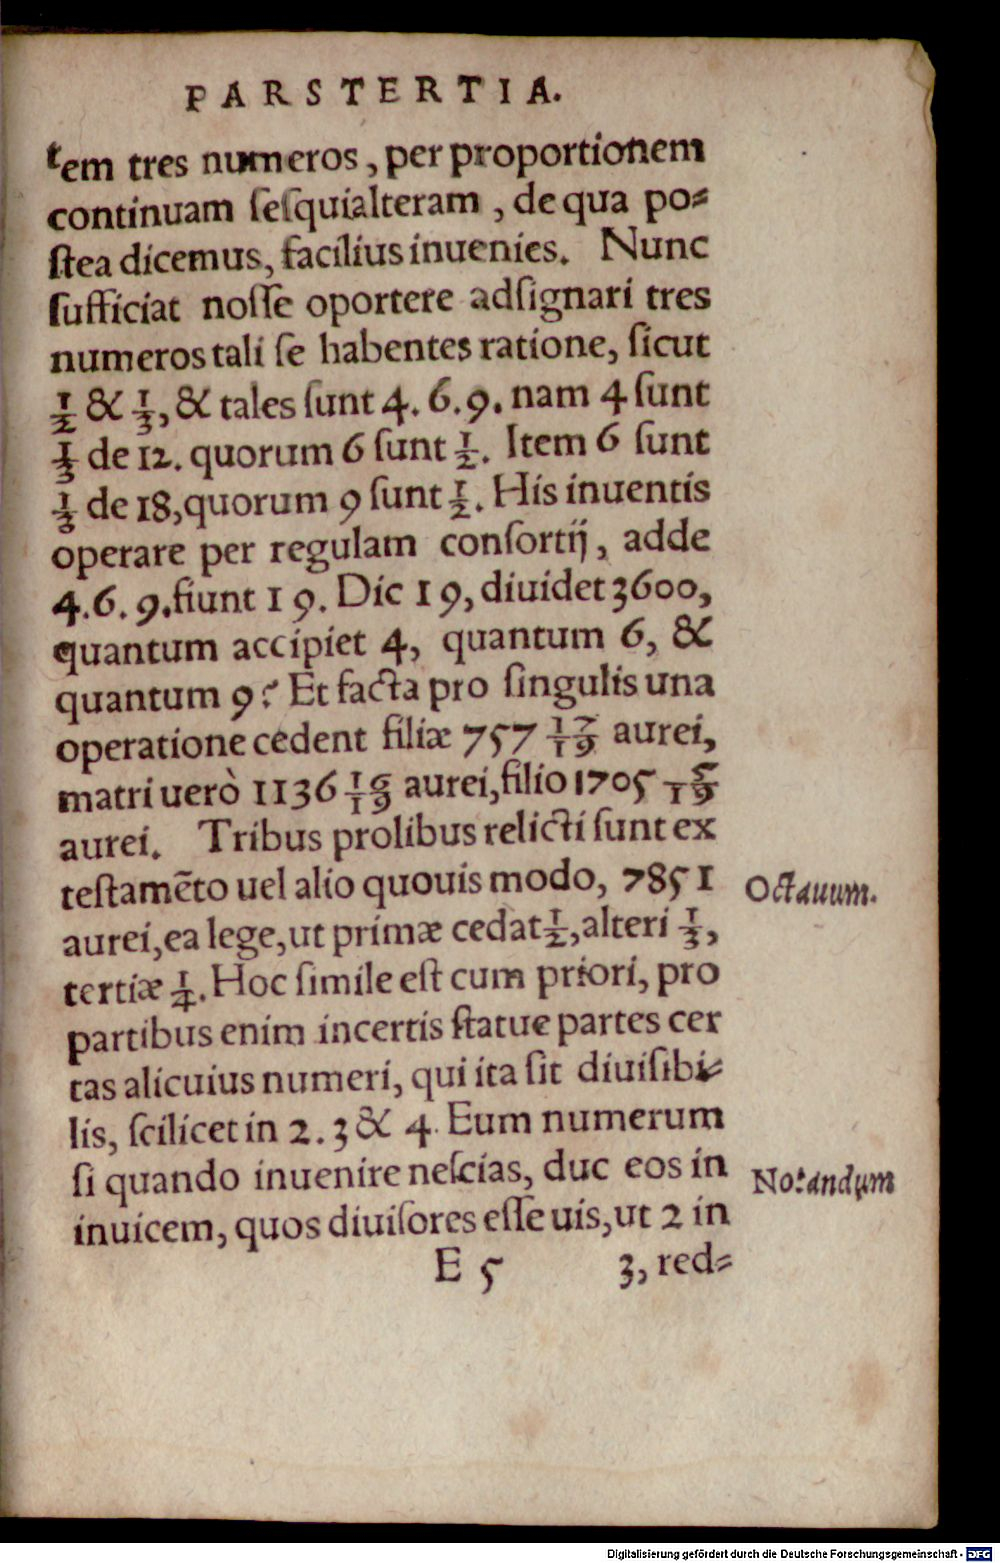 PARS TERTIA.
tem tres numeros, per proportionem
continuam ſeſquialteram, de qua po⸗
ſtea dicemus, facilius inuenies. Nunc
ſufficiat noſſe oportere adſignari tres
numeros tali ſe habentes ratione, ſicut
1/2 & 1/3, & tales ſunt 4. 6. 9. nam 4 ſunt
1/3 de 12. quorum 6 ſunt 1/2. Item 6 ſunt
1/3 de 18, quorum 9 ſunt 1/2. His inuentis
operare per regulam conſortij, adde
4. 6. 9. fiunt 19. Dic 19, diuidet 3600,
quantum accipiet 4, quantum 6, &
quantum 9? Et facta pro ſingulis una
operatione cedent filiæ 757 17/19 aurei,
matri uerò 1136 16/19 aurei, filio 1705 5/19
aurei. Tribus prolibus relicti ſunt ex
teſtamēto uel alio quouis modo, 7851 Octauum.
aurei, ea lege, ut primæ cedat 1/2, alteri 1/3,
tertiæ 1/4. Hoc ſimile eſt cum priori, pro
partibus enim incertis ſtatue partes cer
tas alicuius numeri, qui ita ſit diuiſibi⸗
lis, ſcilicet in 2. 3 & 4. Eum numerum
ſi quando inuenire neſcias, duc eos in Notandum
inuicem, quos diuiſores eſſe uis, ut 2 in
E 5 3, red⸗
Digitalisierung gefördert durch die Deutsche Forschungsgemeinschaft - DFG